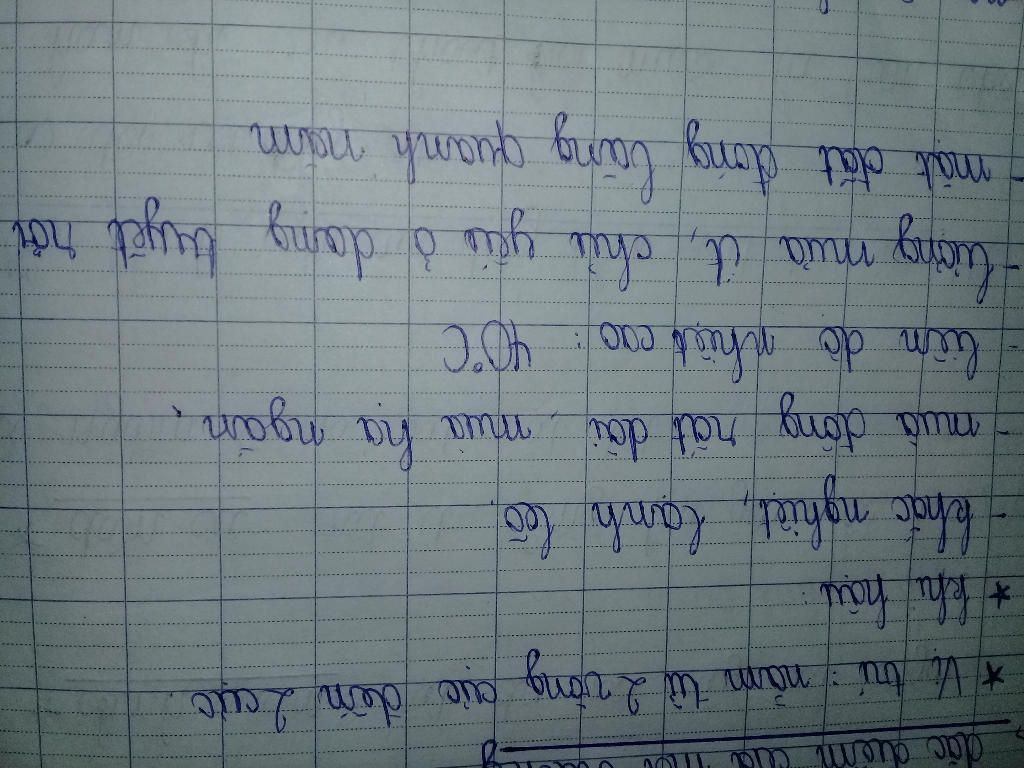 đặc điểm của môi trường
* Vị trí: nằm từ 2 vòng cực đến 2 cực.
* khí hậu:
- khắc nghiệt, lạnh lẽo.
- mùa đông rất dài, mùa hạ ngắn.
- biên độ nhiệt cao: 40°C
- lượng mưa ít, chủ yếu ở dạng tuyết rơi
- mặt đất đóng băng quanh năm